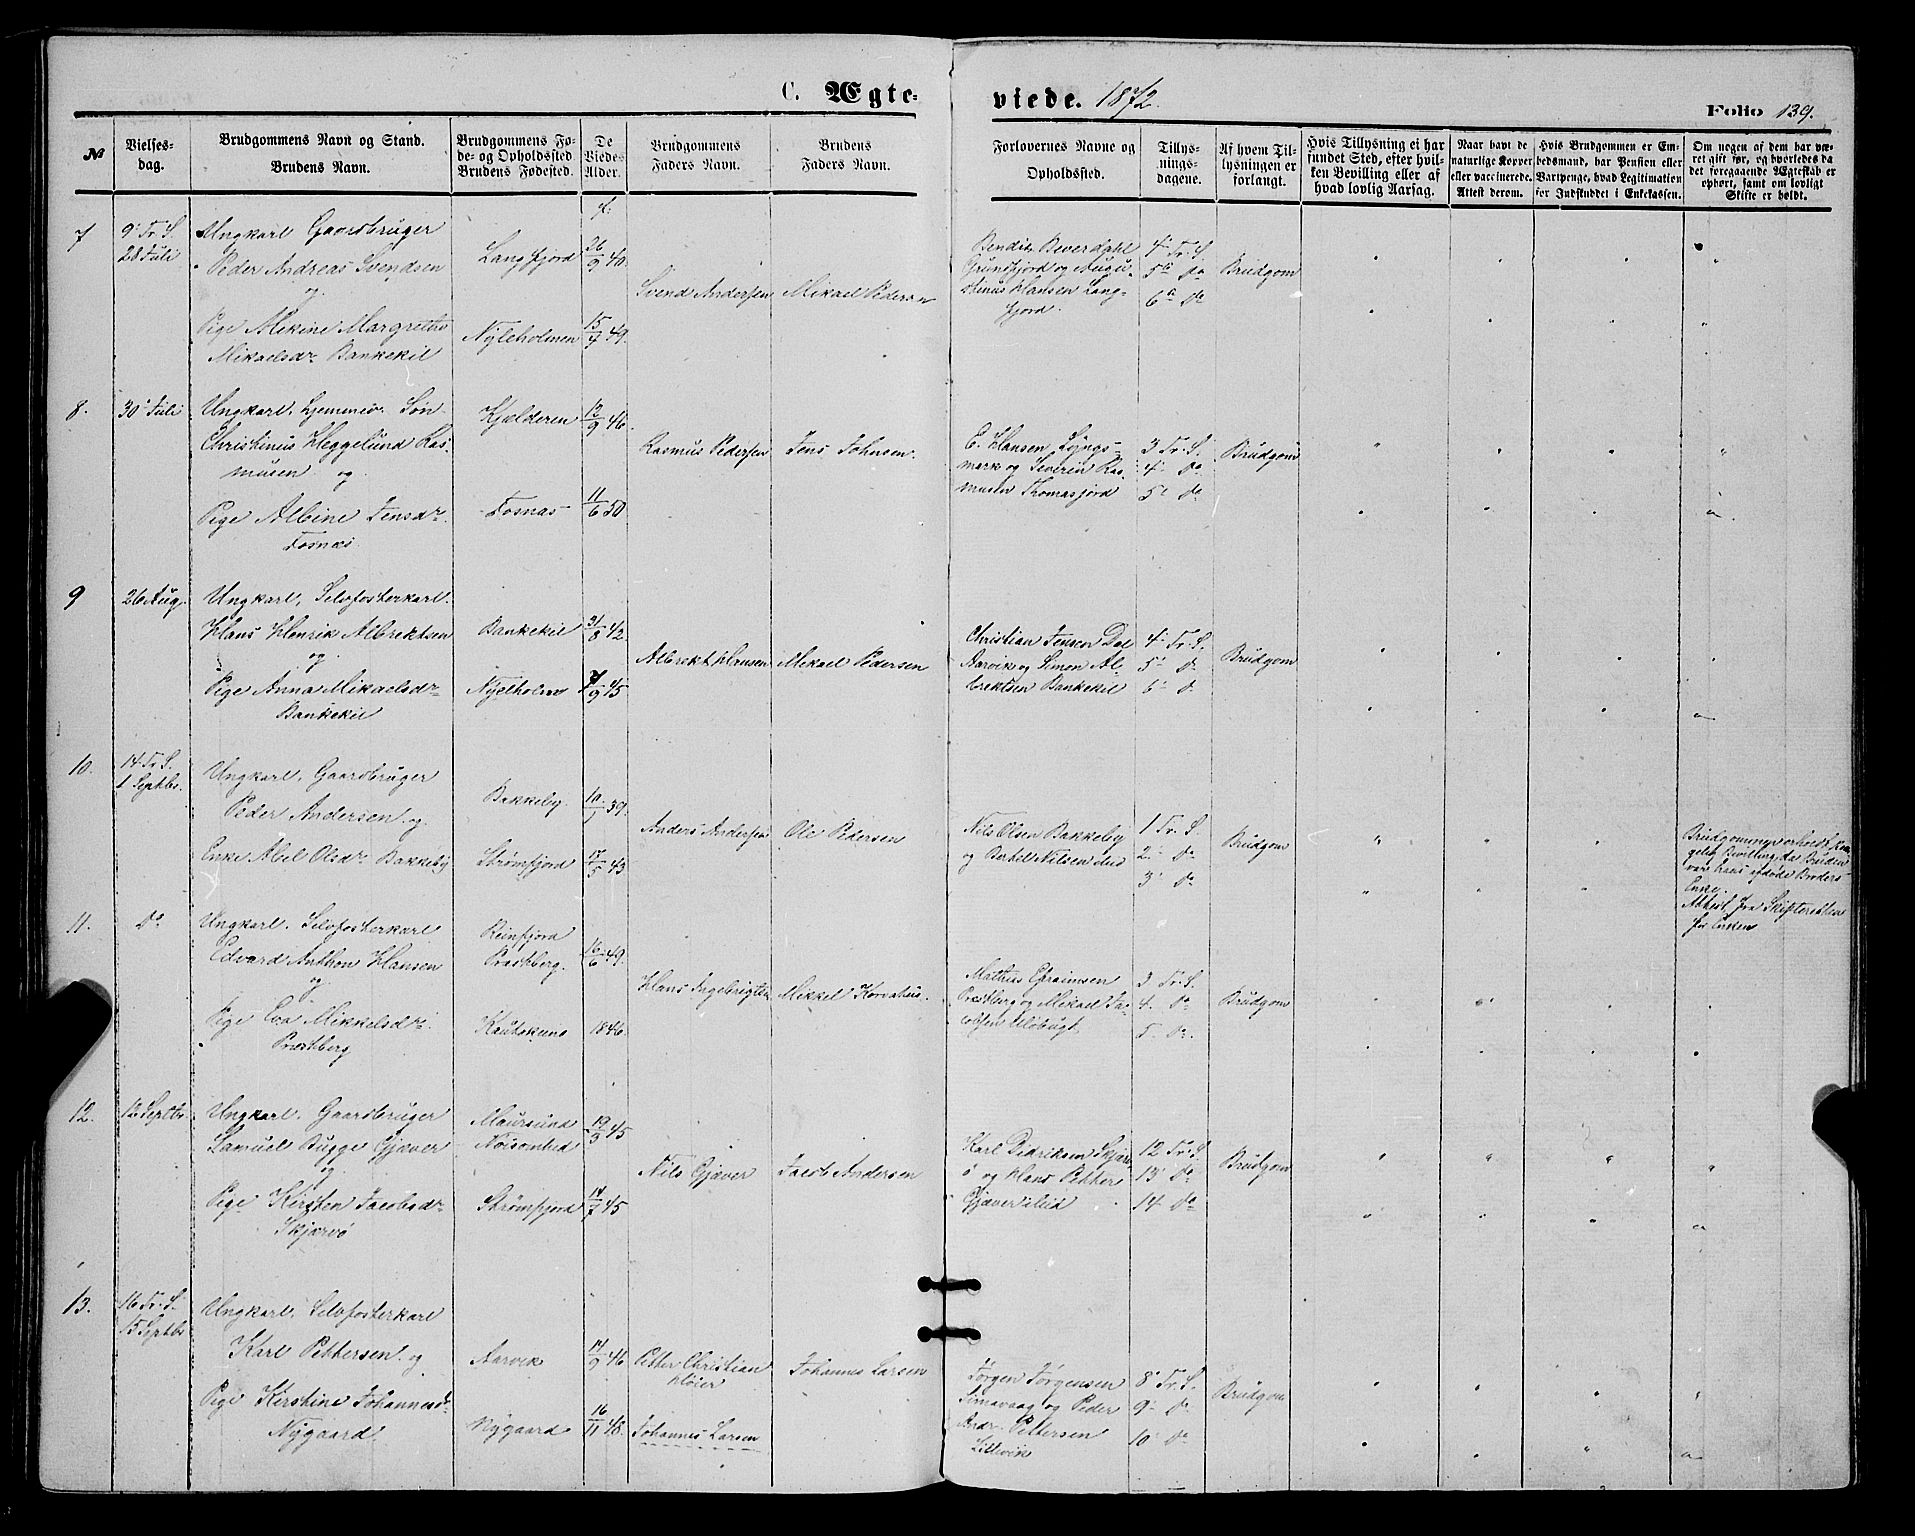 C. Ægte-
viede. 1872.
Folio 139.
№
Vielses-
dag.
Brudgommens Navn og Stand.
Brudens Navn.
Brudgommens Fø-
de- og Opholdssted.
Brudens Fødested.
De
Viedes
Alder.
Brudgommens
Faders Navn.
Brudens
Faders Navn.
Forlovernes Navne og
Opholdssted.
Tillys-
nings-
dagene.
Af hvem Til-
lysningen er
forlangt.
Hvis Tillysning ei har
fundet Sted, efter hvil-
ken Bevilling eller af
hvad lovlig Aarsag.
Naar havt de
naturlige Kopper
eller vaccinerede.
Attest derom.
Hvis Brudgommen er Em-
bedsmand, har Pension eller
Vartpenge, hvad Legitimation
for Indskuddet i Enkekassen.
Om nogen af dem har væ-
ret gift før, og hvorledes da
det foregaaende Ægteskab er
ophørt, samt om lovligt
Skifte er holdt.
7
9' Tr. S.
28 Juli
Ungkarl Gaardbruger
Peder Andreas Svendsen
og
Pige Alekine Margrethe
Mikaelsdr Bankekil
Langfjord
Nyleholmen
26/9 40.
15/7 49.
Svend Andersen
Mikael Pedersen
Bendik Beverdahl
Grundfjord og Augu-
stinus Hansen Lang-
fjord.
4' Tr. S
5te Do
6te Do
Brudgom
8.
30' Juli
Ungkarl, hjemmev. Søn
Christinus Heggelund Ras-
musen og
Pige Albine Jensdr.
Tosnæs.
Kjælderen
Tosnæs
12/9 46.
11/6 50
Rasmus Pedersen
Jens Johnsen.
E. Hansen Lyngs-
mark og Severin Ras-
musen Thomasjord
3 Tr. S.
4' Do
5' Do
Brudgom
9
26 Aug.
Ungkarl, Selvfosterkarl.
Hans Henrik Albrektsen
og
Pige Anna Mikaelsdr
Bankekil
Bankekil
Nyeholmen
31/8 42
7/9 45
Albrekt Hansen
Mikael Pedersen
Christian Jensen Dal
Aarvik og Simon Al-
brektsen Bankekil
4' Tr. S.
5' Do
6' D.
Brudgom
10.
14 Tr. S.
1 Septbr.
Ungkarl, Gaardbruger
Peder Andersen og
Enke Abel Olsdr Bakkeby
Bakkeby
Strømfjord
10/1 39.
17/5 43
Anders Andersen
Ole Pedersen
Nils Olsen Bakkeby
og Berhel Nilsen
1 Tr. S.
2' Do
3' Do
Brudgom
Brudgommen erholdt Kon-
gelig Bevilling, da Bruden
var hans afdøde Broders
Enke.
Attest fra Skifteretten
for Enken
11.
Do
Ungkarl. Selvfosterkarl
Edvard Anthon Hansen
og
Pige Eva Mikkelsdr.
Præstberg
Reinfjord
Præstberg.
Kautokeino
16/6 49.
1846.
Hans Ingebrigtsen
Mikkel Korvatus.
Mathis Efraimsen
Præstberg og Mikael Ja-
cobsen
3 Tr. S.
4. Do
5. Do.
Brudgom
12.
12 Septbr
Ungkarl. Gaardbruger
Samuel Bugge Gjæver
og
Pige Kirsten Jacobsdr
Skjærvø
Maursund
Nøisomhed
Strømfjord
19/3 45
14/7 45
Nils Gjæver
Jacob Andersen
Karl Didriksen Skjærv-
ø og Hans Petter
Gjæver ibid
12 Tr. S.
13' Do
14 Do
Brudgom
13.
16 Tr. S.
15 Septbr
Ungkarl, Selvfosterkarl
Karl Pettersen og
Pige Kirstine Johannesdr
Nygaard
Aarvik
Nygaard
14/9 46
16/11 48.
Petter Christian
Høier
Johannes Larsen
Johannes Larsen
Jørgen Jørgensen
Simavaag og Peder
Andr. Pettersen
Lillevik
8' Tr. S.
9' Do
10' Do
Brudgom